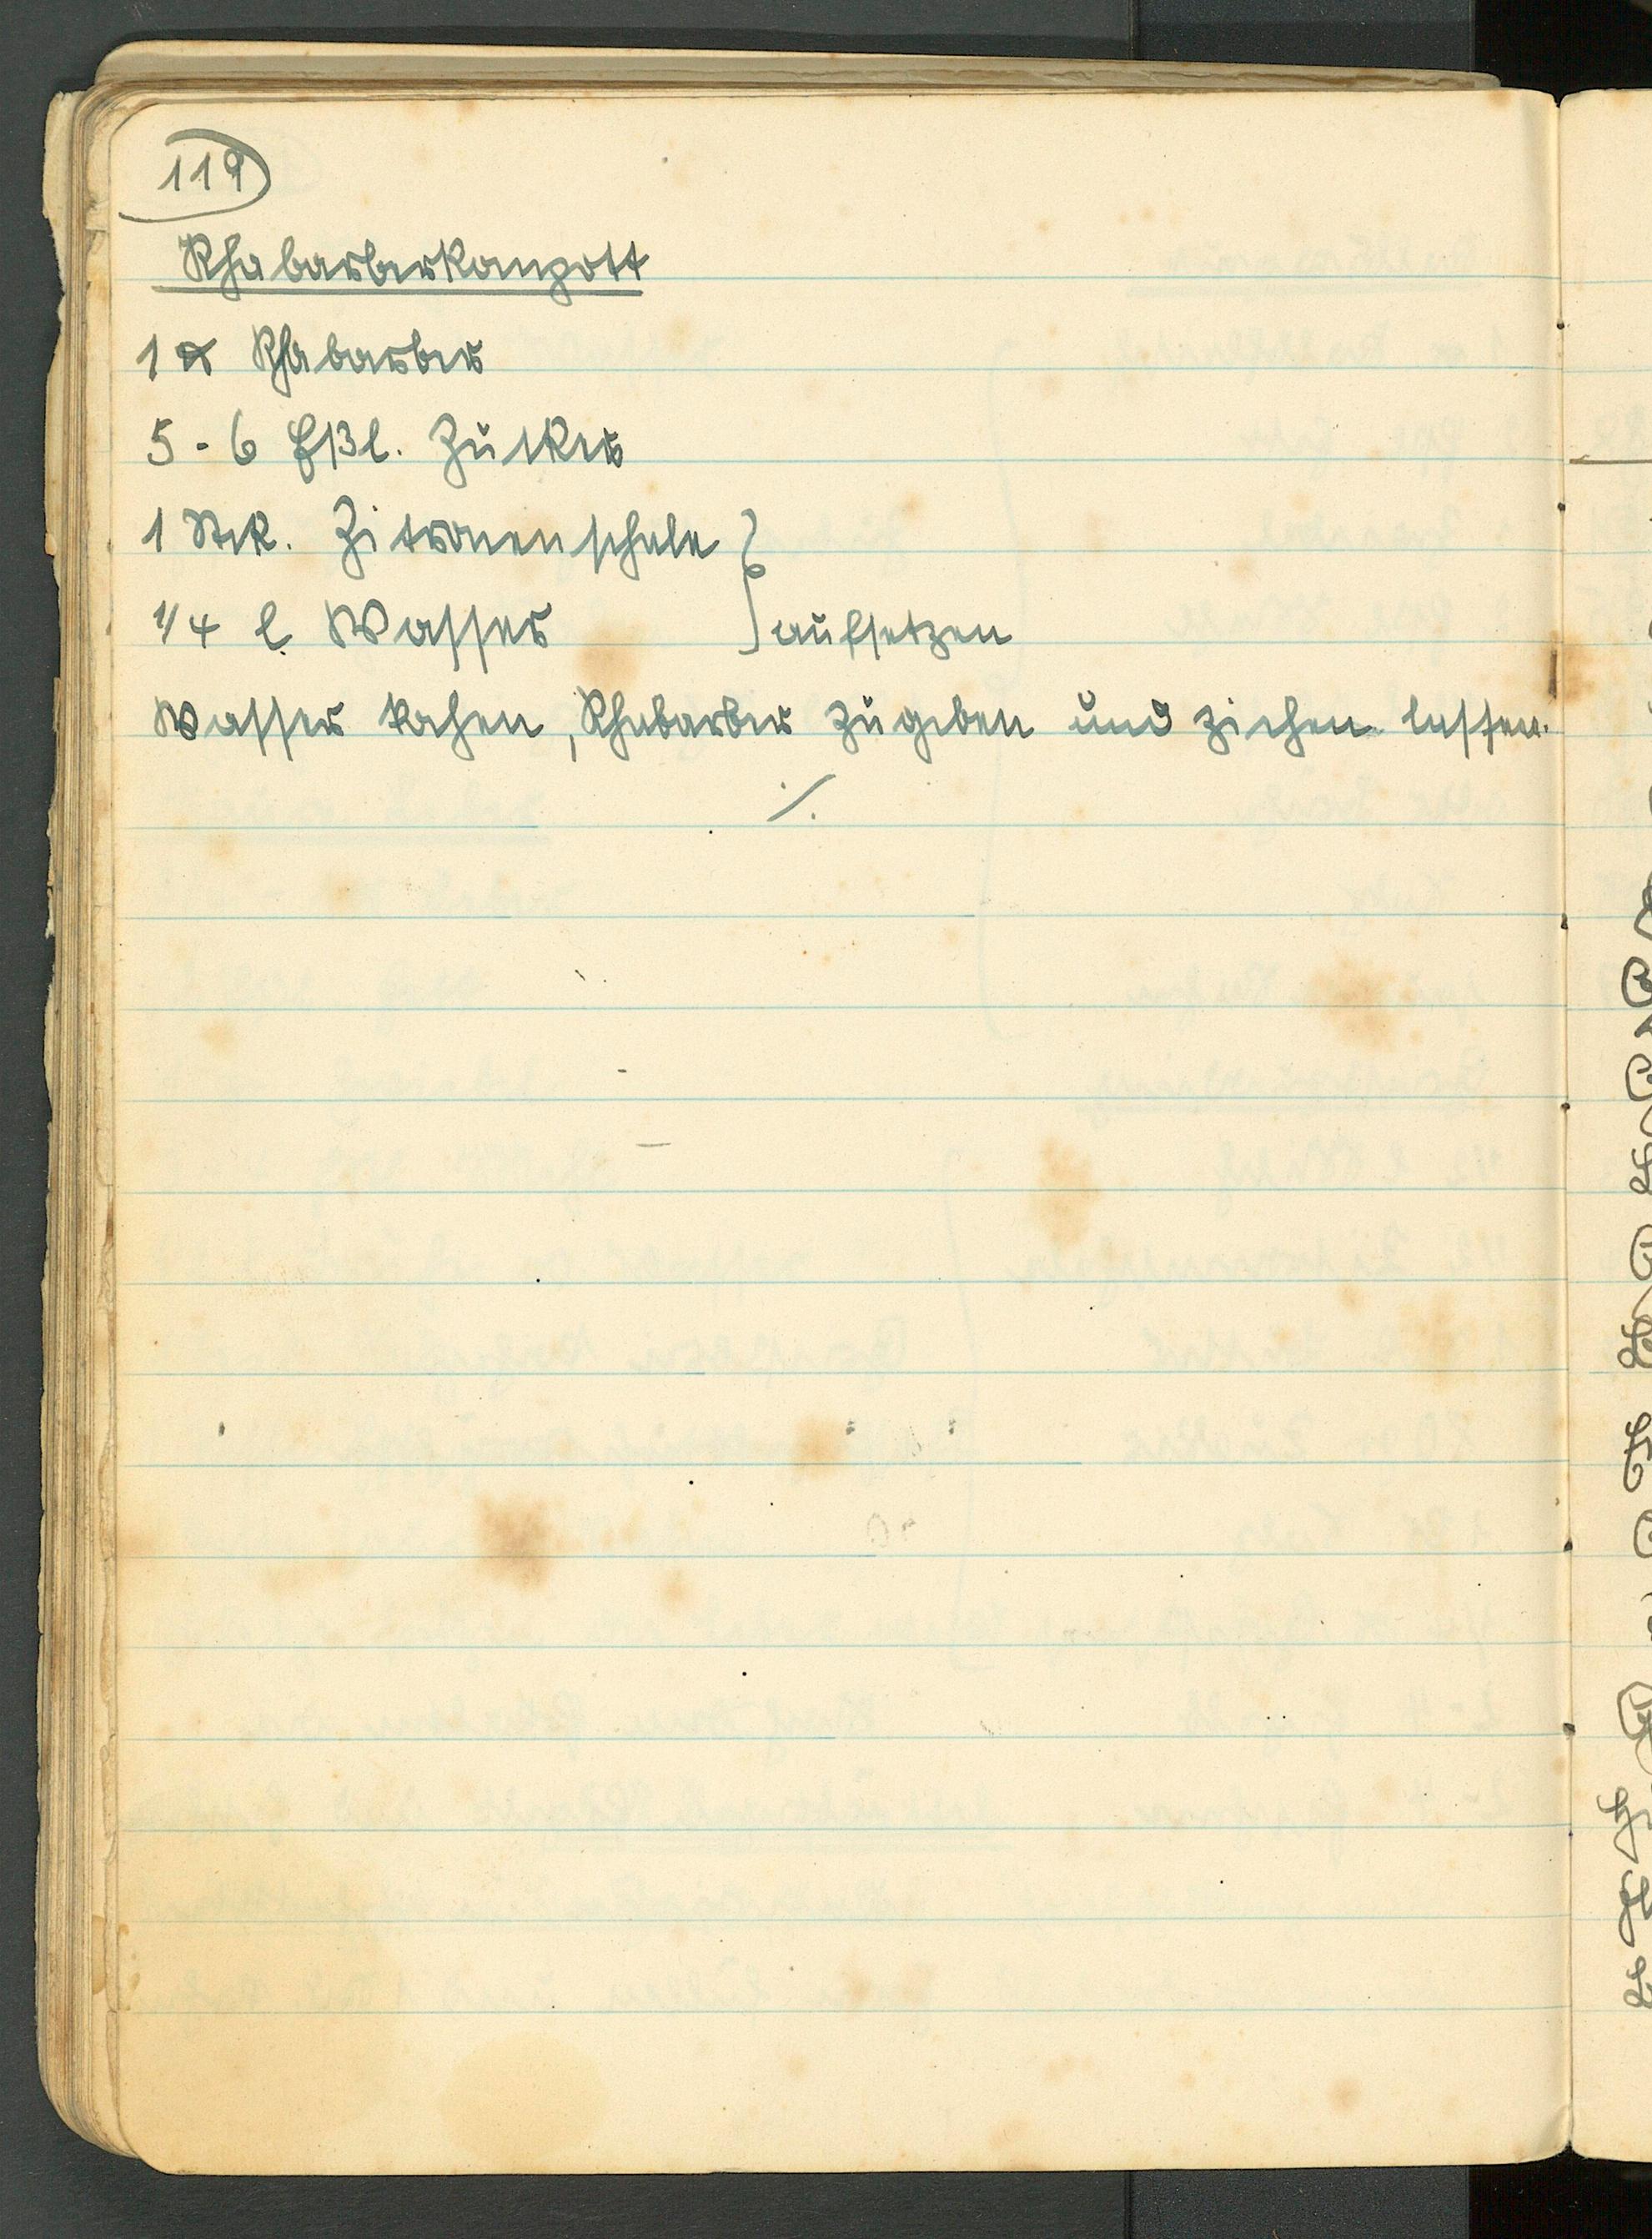 119
Rhabarberkompott
1 ℔ Rhabarber
5-6 Eßl. Zucker
1 Stck. Zitronenschale
1/4 l Wasser } aufsetzen
Wasser kochen, Rhabarber zugeben und ziehen lassen.
./.